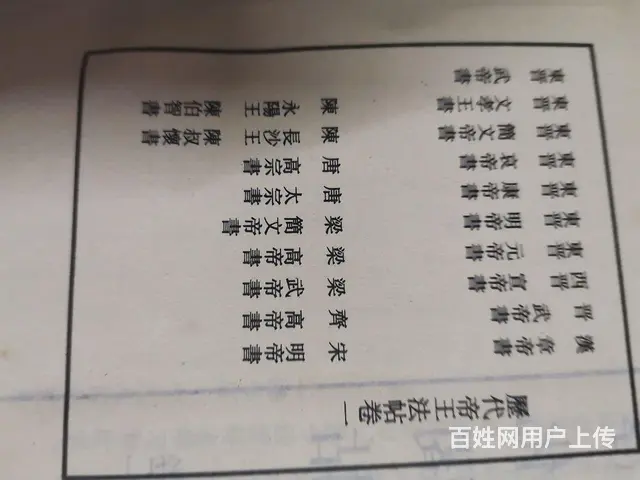 歷代帝王法帖卷一
漢 章帝書
晉 武帝書
西晉 宣帝書
東晉 元帝書
東晉 明帝書
東晉 康帝書
東晉 哀帝書
東晉 簡文帝書
東晉 文孝王書
東晉 武帝書
宋 明帝書
齊 高帝書
梁 武帝書
梁 高帝書
梁 簡文帝書
唐 太宗書
唐 高宗書
陳 長沙王 陳叔懷書
陳 永陽王 陳伯智書
百姓网用户上传